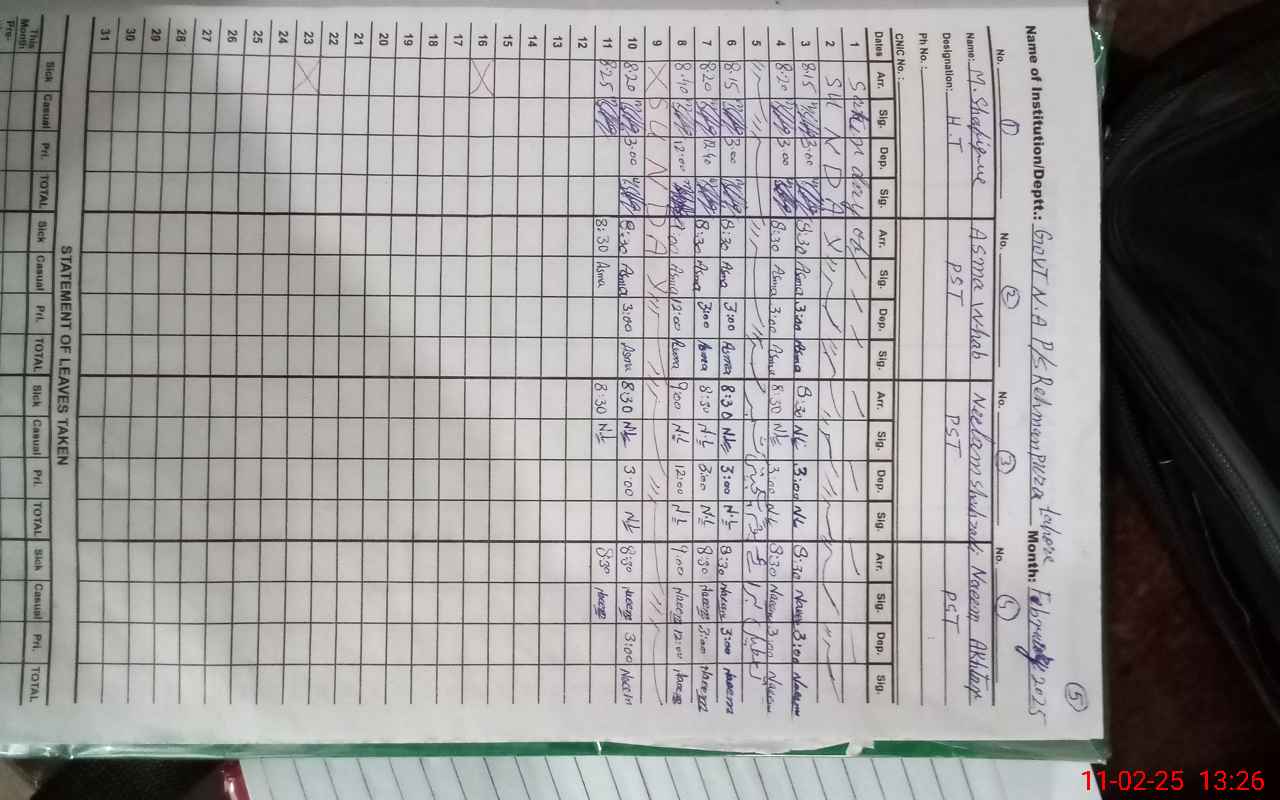 5
Name of Institution/Deptt.: GOVT N.A P/S Rehmanpura Lahore Month: February 2025
No. 1 No. 2 No. 3 No. 4
Name: M. Shafique Asma Whab Neelam Shahzadi Naeem Akhtar
Designation: H.T PST PST PST
Ph No.:
CNIC No.:
Dates Arr. Sig. Dep. Sig. Arr. Sig. Dep. Sig. Arr. Sig. Dep. Sig. Arr. Sig. Dep. Sig.
1
2 S U N D A Y
3 8:15 3:00 8:30 Asma 3:00 Asma 8:30 NL 3:00 NL 8:30 Naeem 3:00 Naeem
4 8:20 3:00 8:30 Asma 3:00 Asma 8:30 NL 3:00 NL 8:30 Naeem 3:00 Naeem
5
6 8:15 3:00 8:30 Asma 3:00 Asma 8:30 NL 3:00 NL 8:30 Naeem 3:00 Naeem
7 8:20 12:40 8:30 Asma 3:00 Asma 8:30 NL 3:00 NL 8:30 Naeem 3:00 Naeem
8 8:40 12:00 9:00 Asma 12:00 Asma 9:00 NL 12:00 NL 9:00 Naeem 12:00 Naeem
9 S U N D A Y
10 8:20 3:00 8:30 Asma 3:00 Asma 8:30 NL 3:00 NL 8:30 Naeem 3:00 Naeem
11 8:25 8:30 Asma 8:30 NL 8:30 Naeem
12
13
14
15
16
17
18
19
20
21
22
23
24
25
26
27
28
29
30
31
STATEMENT OF LEAVES TAKEN
Sick Casual Pri. TOTAL Sick Casual Pri. TOTAL Sick Casual Pri. TOTAL Sick Casual Pri. TOTAL
This Month
Pre-
11-02-25 13:26